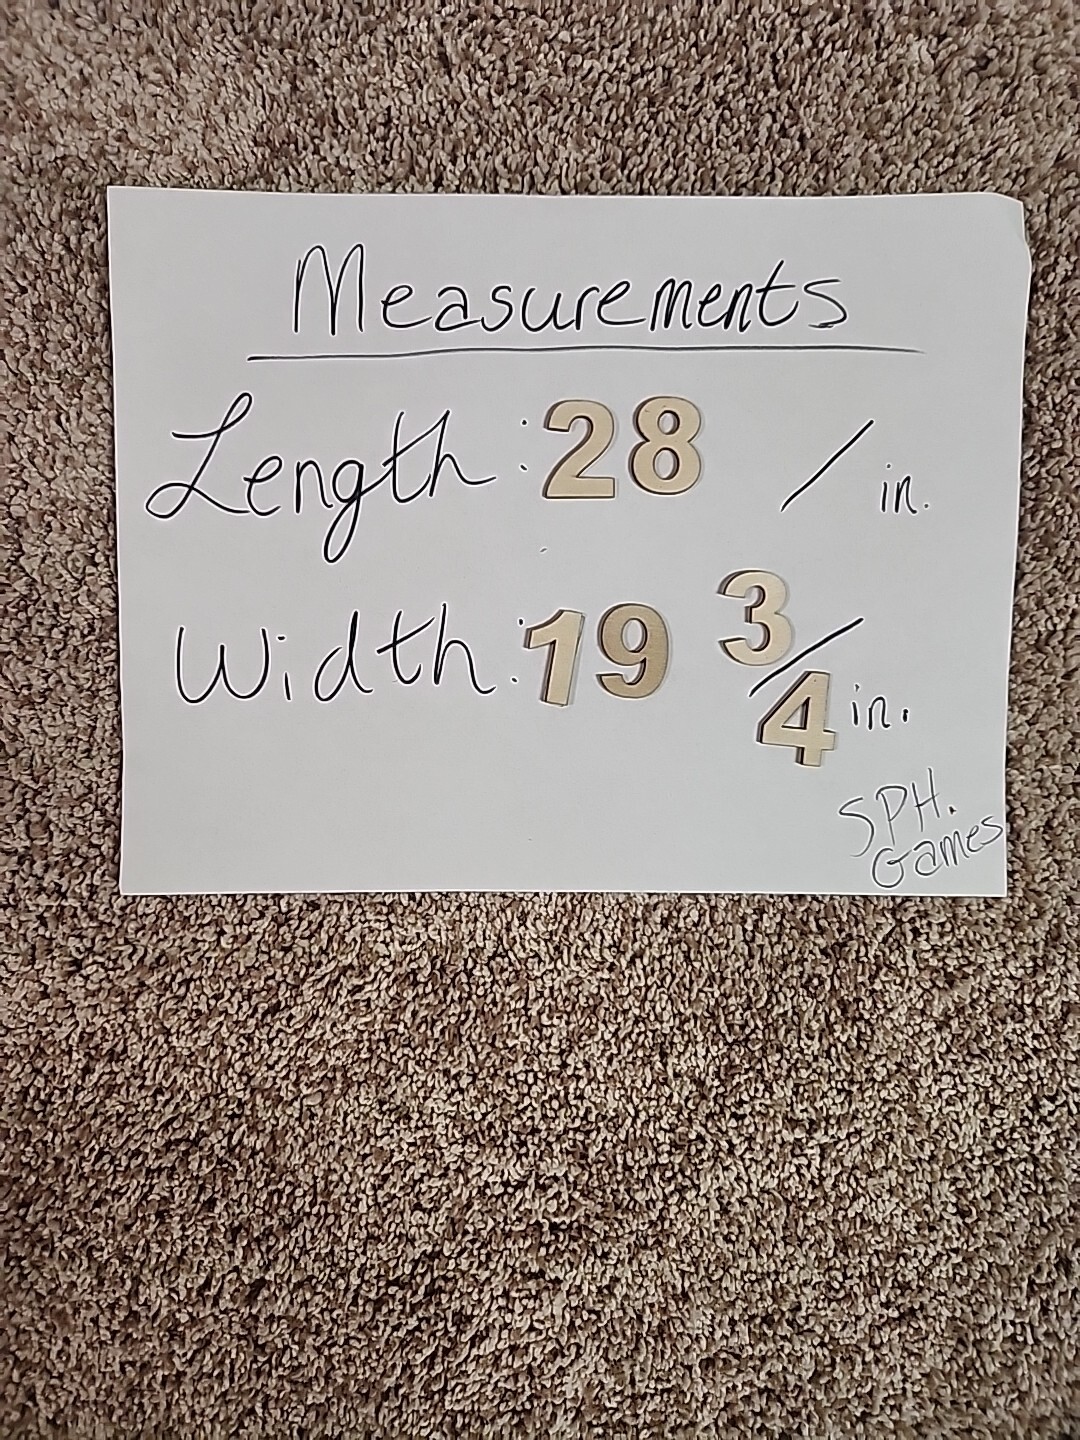 Measurements
Length: 28 / in.
Width: 19 3/4 in.
SPH.
Games